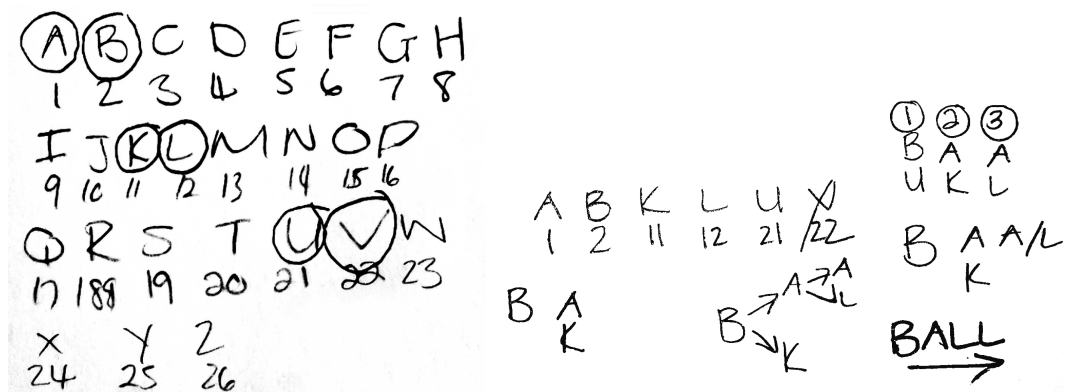 A B C D E F G H
1 2 3 4 5 6 7 8
I J K L M N O P
9 10 11 12 13 14 15 16
Q R S T U V W
17 188 19 20 21 22 23
X Y Z
24 25 26
A B K L U V
1 2 11 12 21 22
B A
K
B A A
L
K
1 2 3
B A A
U K L
B A A/L
K
BALL